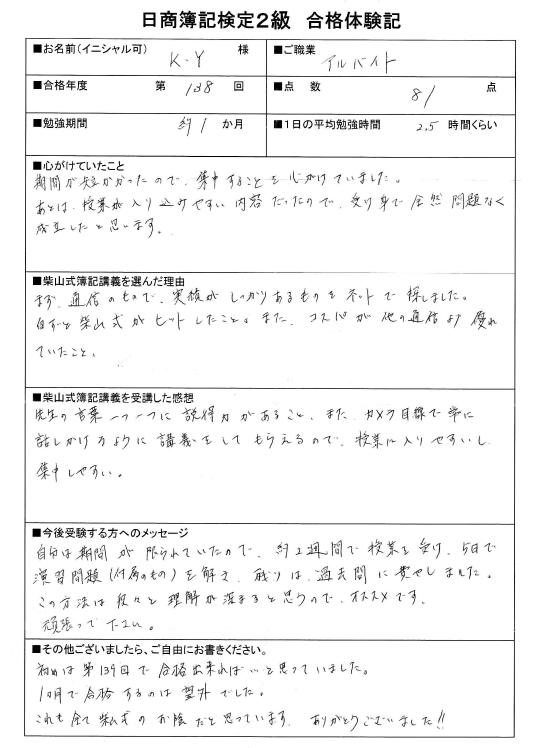 日商簿記検定2級 合格体験記
■お名前(イニシャル可) K.Y 様
■ご職業 アルバイト
■合格年度 第 138 回
■点 数 81 点
■勉強期間 約1 か月
■1日の平均勉強時間 2.5 時間くらい
■心がけていたこと
期間が短かかったので、集中することを心がけていました。
あとは、授業が入り込みやすい内容だったので、受け身で全然問題なく
成立したと思います。
■柴山式簿記講義を選んだ理由
まず、通信のもので、実績がしっかりあるものをネットで探しました。
自ずと柴山式がヒットしたこと。また、コスパが他の通信より優れ
ていたこと、
■柴山式簿記講義を受講した感想
先生の言葉一つ一つに説得力があること、また、カメラ目線で常に
話しかけるように講義をしてもらえるので、授業に入りやすいし
集中しやすい。
■今後受験する方へのメッセージ
自分は期間が限られていたので、約2週間で授業を受け、5日で
演習問題(付属のもの)を解き、残りは、過去問に費やしました。
この方法は段々と理解が深まると思うので、オススメです。
頑張って下さい。
■その他ございましたら、ご自由にお書きください。
初めは第139回で合格出来ればいいと思っていました。
1ヶ月で合格するのは望外でした。
これも全て柴山式のお陰だと思っています。ありがとうございました!!